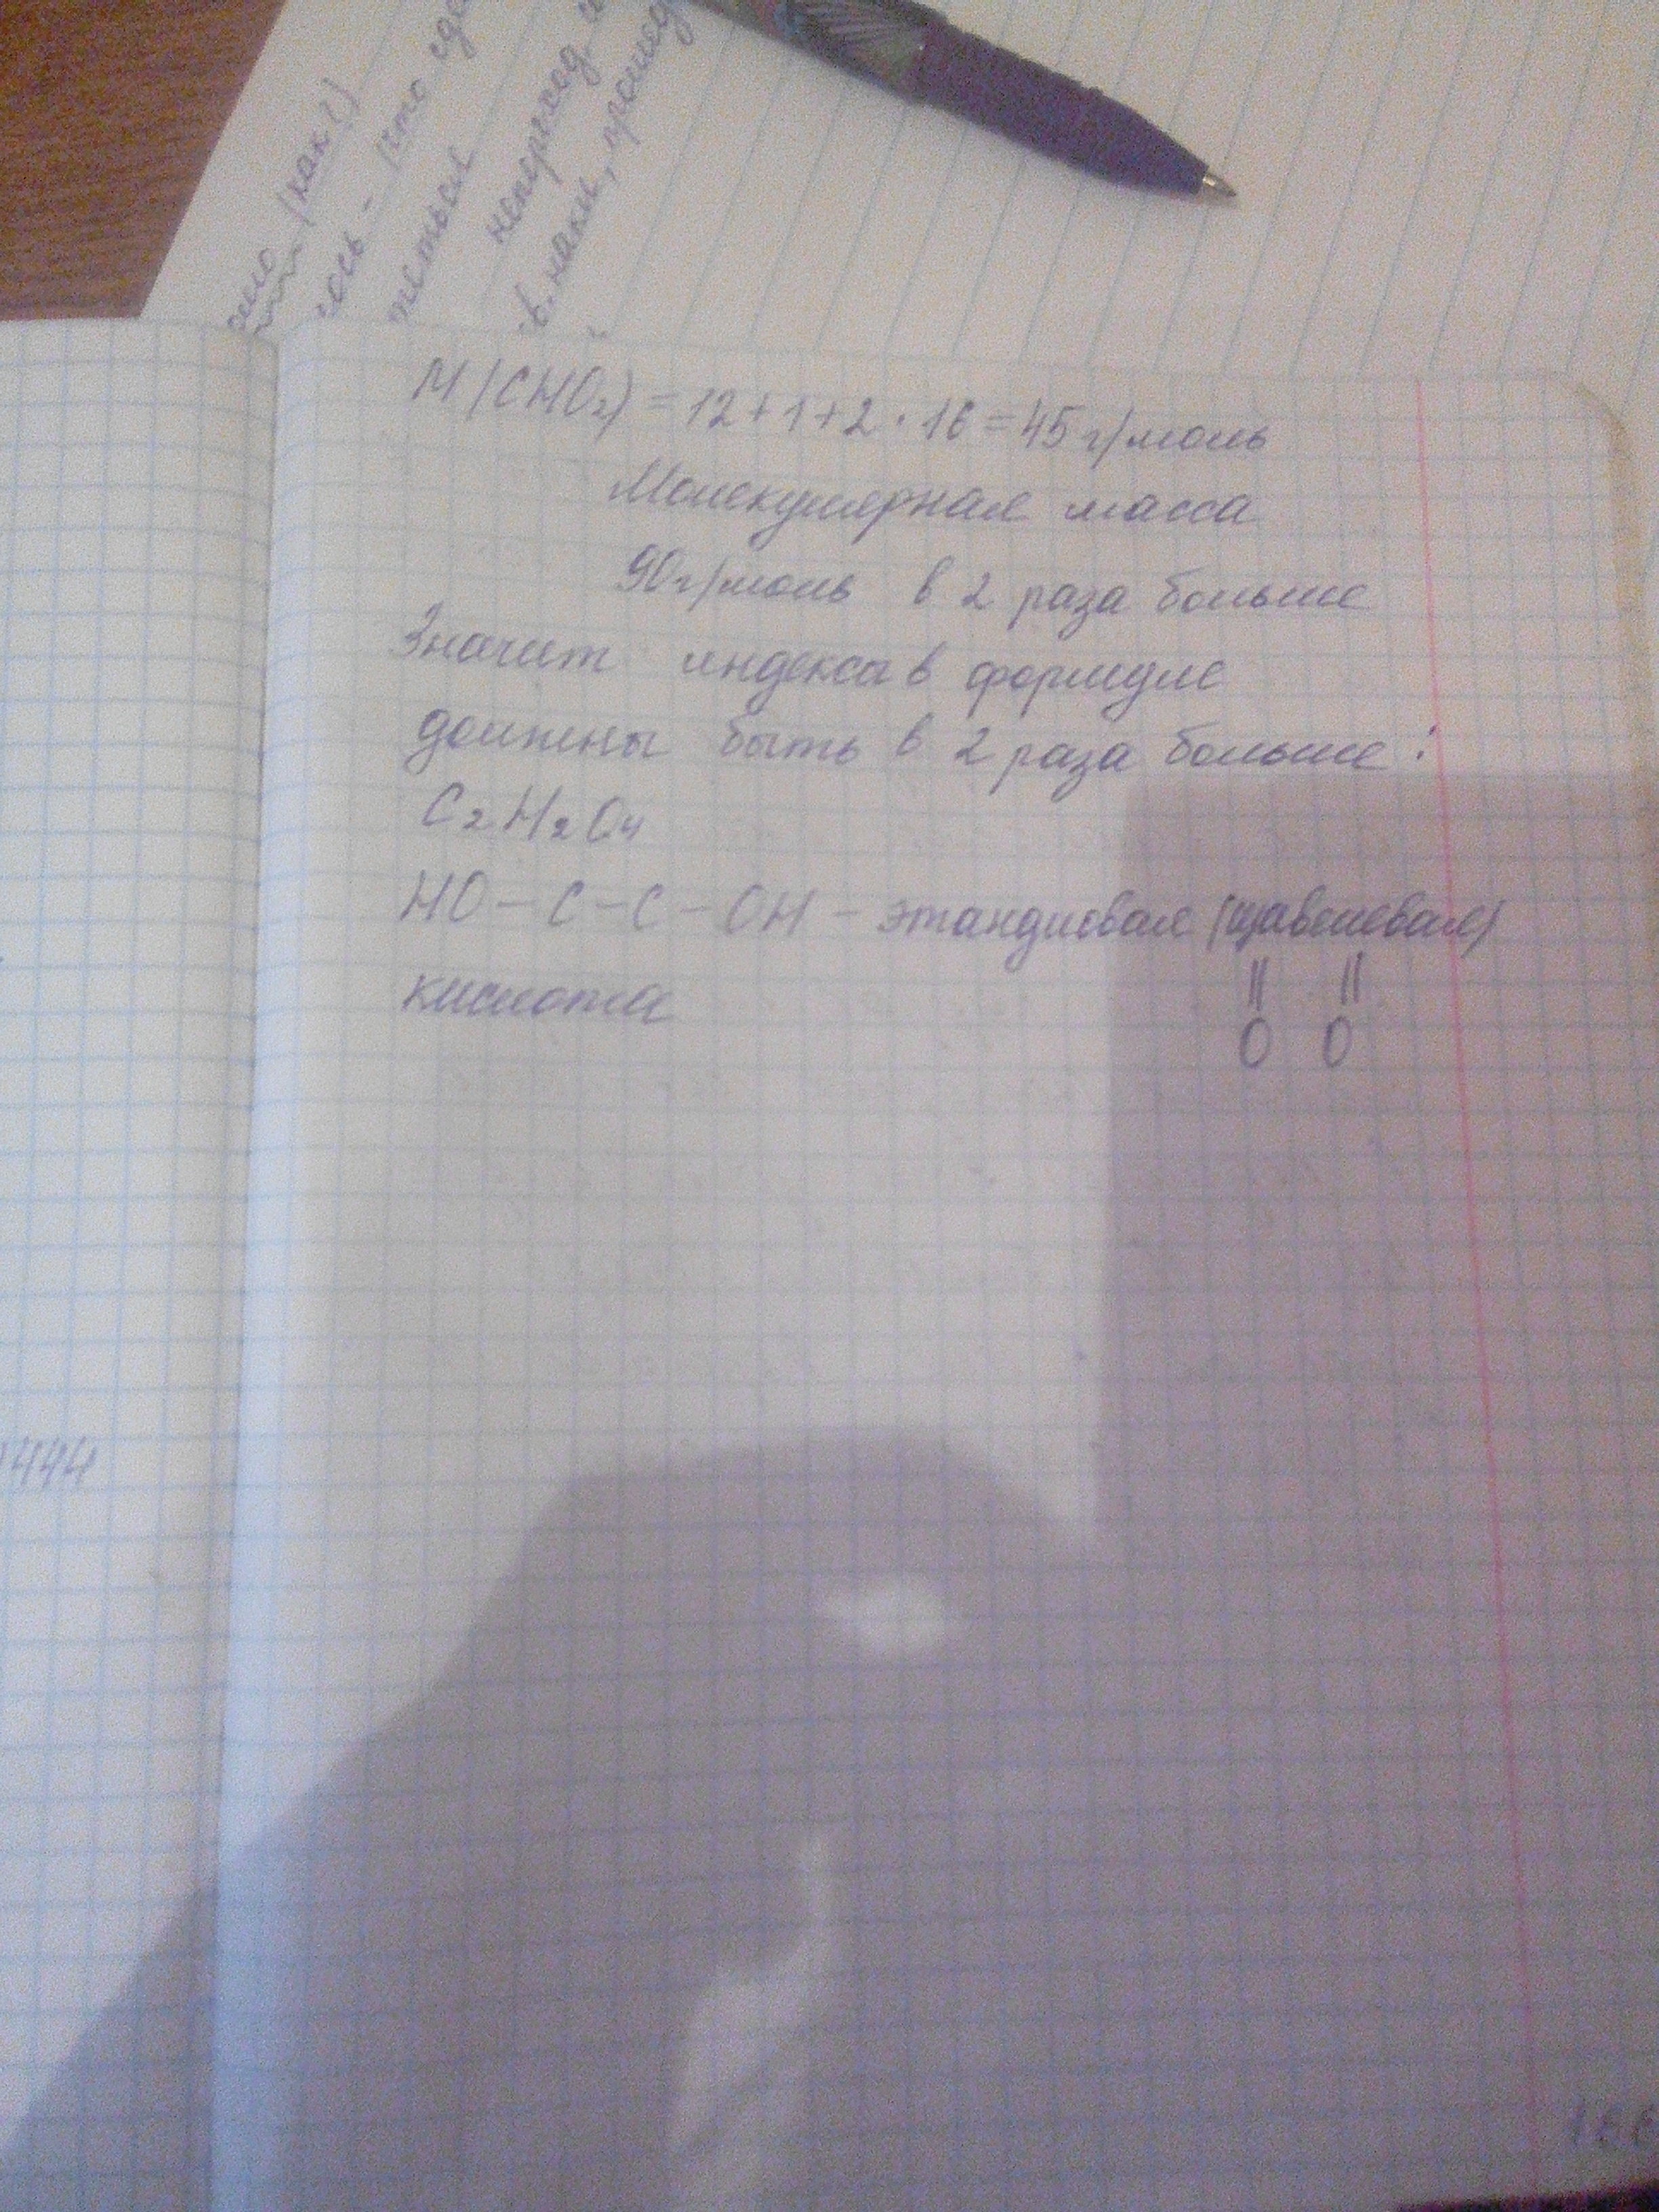 (как?)
непереход
М(CHO₂) = 12+1+2·16=45 г/моль
Молекулярная масса
90г/моль в 2 раза больше
Значит индексы в формуле
должны быть в 2 раза больше:
C₂H₂O₄
HO – C – C – OH – этандиовая (щавелевая)
кислота
|| ||
O O
444